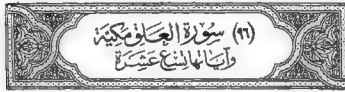 (٩٦) سُورَةُ العَلَقِ مَكِيَّةٌ
وَآيَاتُهَا تِسْعَ عَشَرَةَ